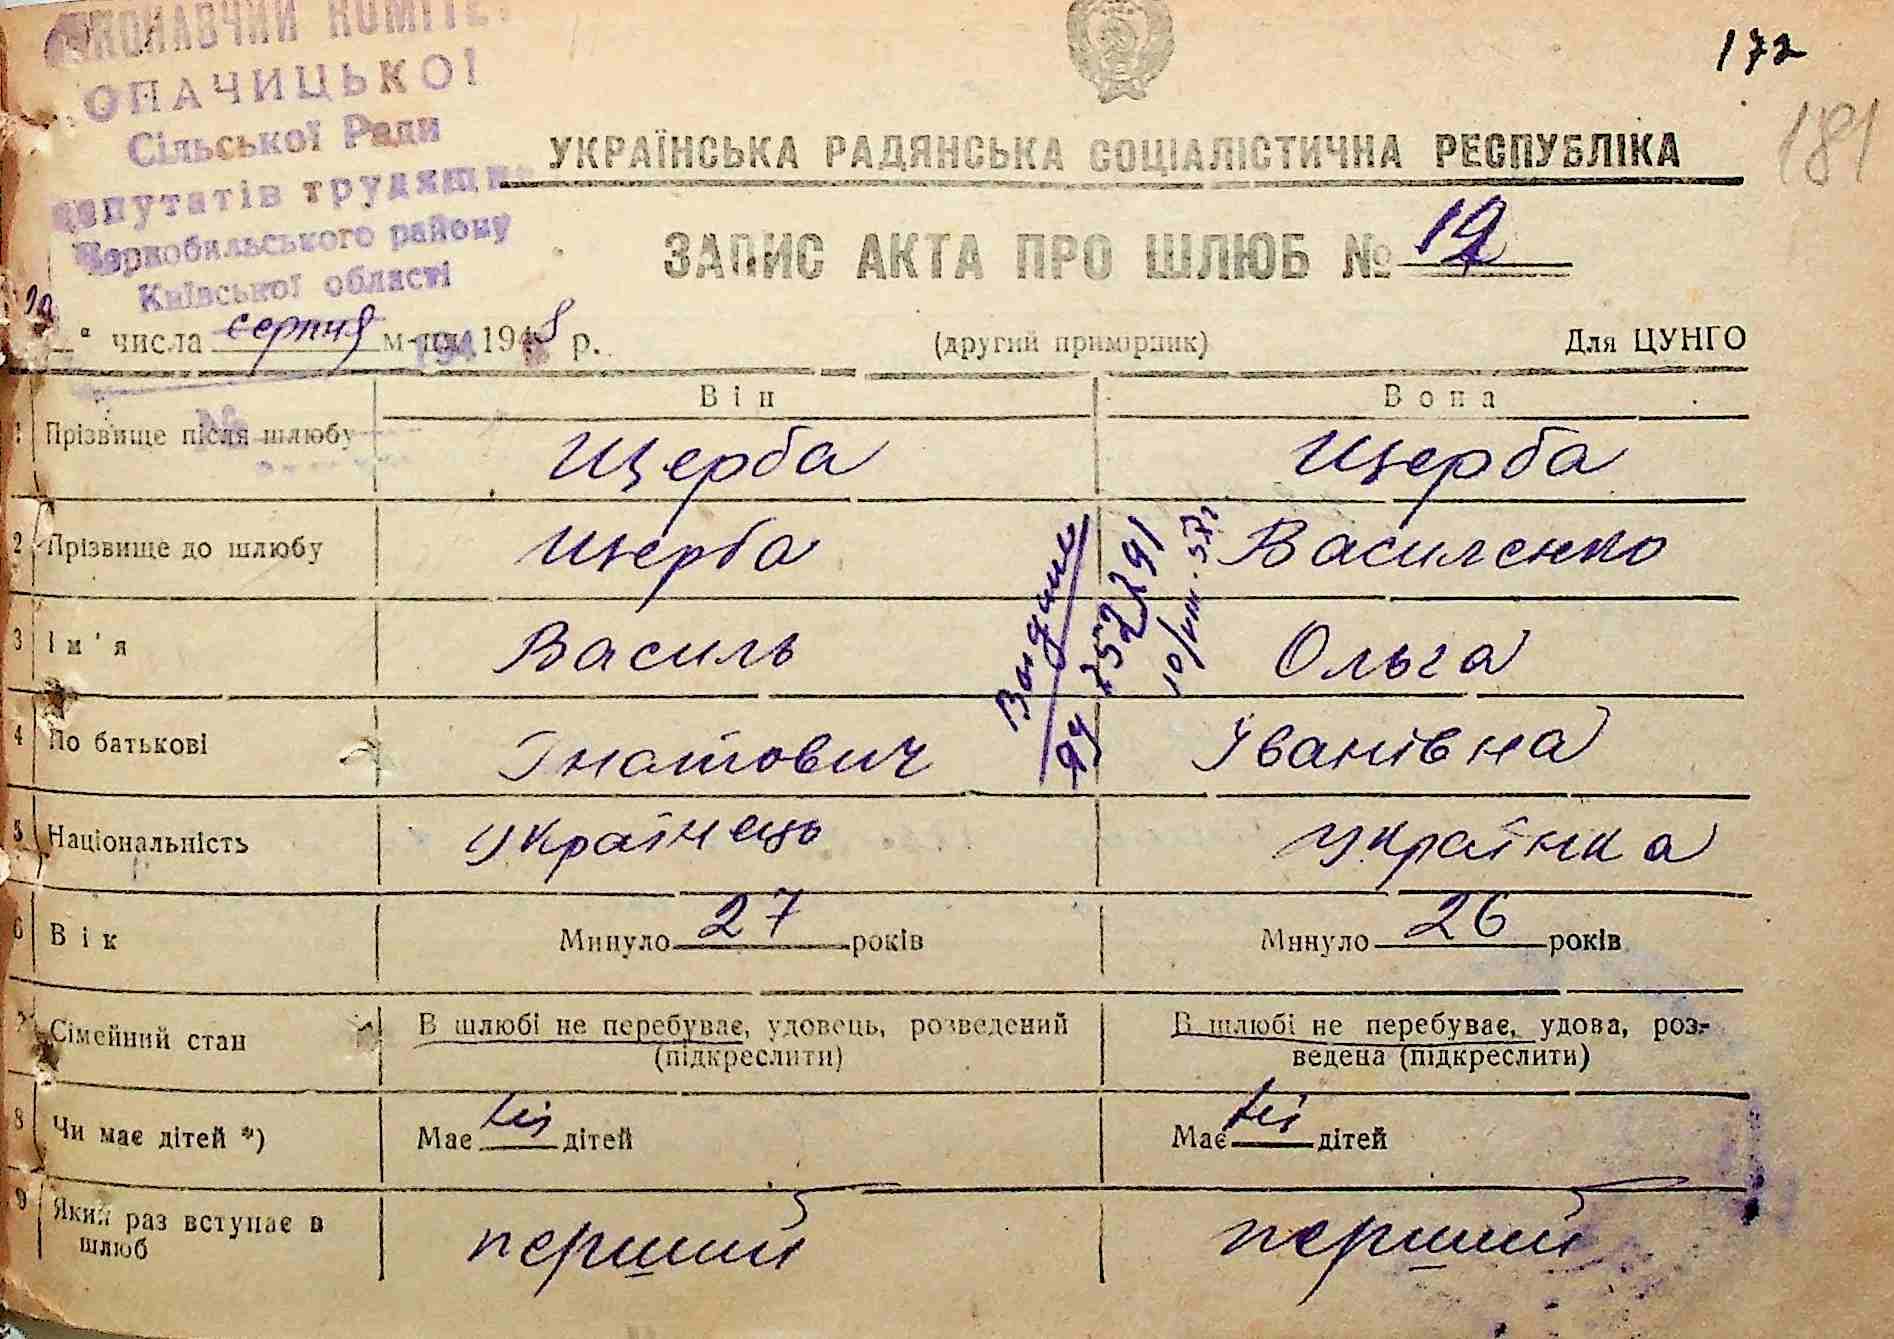 ВИКОНАВЧИЙ КОМІТЕТ
ОПАЧИЦЬКОЇ
Сільської Ради
депутатів трудящих
Чорнобильського району
Київської області
172
181
УКРАЇНСЬКА РАДЯНСЬКА СОЦІАЛІСТИЧНА РЕСПУБЛІКА
ЗАПИС АКТА ПРО ШЛЮБ №
" числа серпня м-ця 1948 р.
(другий примірник)
Для ЦУНГО
Він
Вона
1 Прізвище після шлюбу Щерба Щерба
2 Прізвище до шлюбу Щерба Василенко
3 Ім'я Василь Ольга
4 По батькові Гнатович Іванівна
5 Національність Українець Українка
6 Вік Минуло 27 років Минуло 26 років
7 Сімейний стан В шлюбі не перебуває, удовець, розведений (підкреслити) В шлюбі не перебуває, удова, роз-
ведена (підкреслити)
8 Чи має дітей *) Має дітей Має дітей
9 Який раз вступає в шлюб перший перший
10/VIII-57г